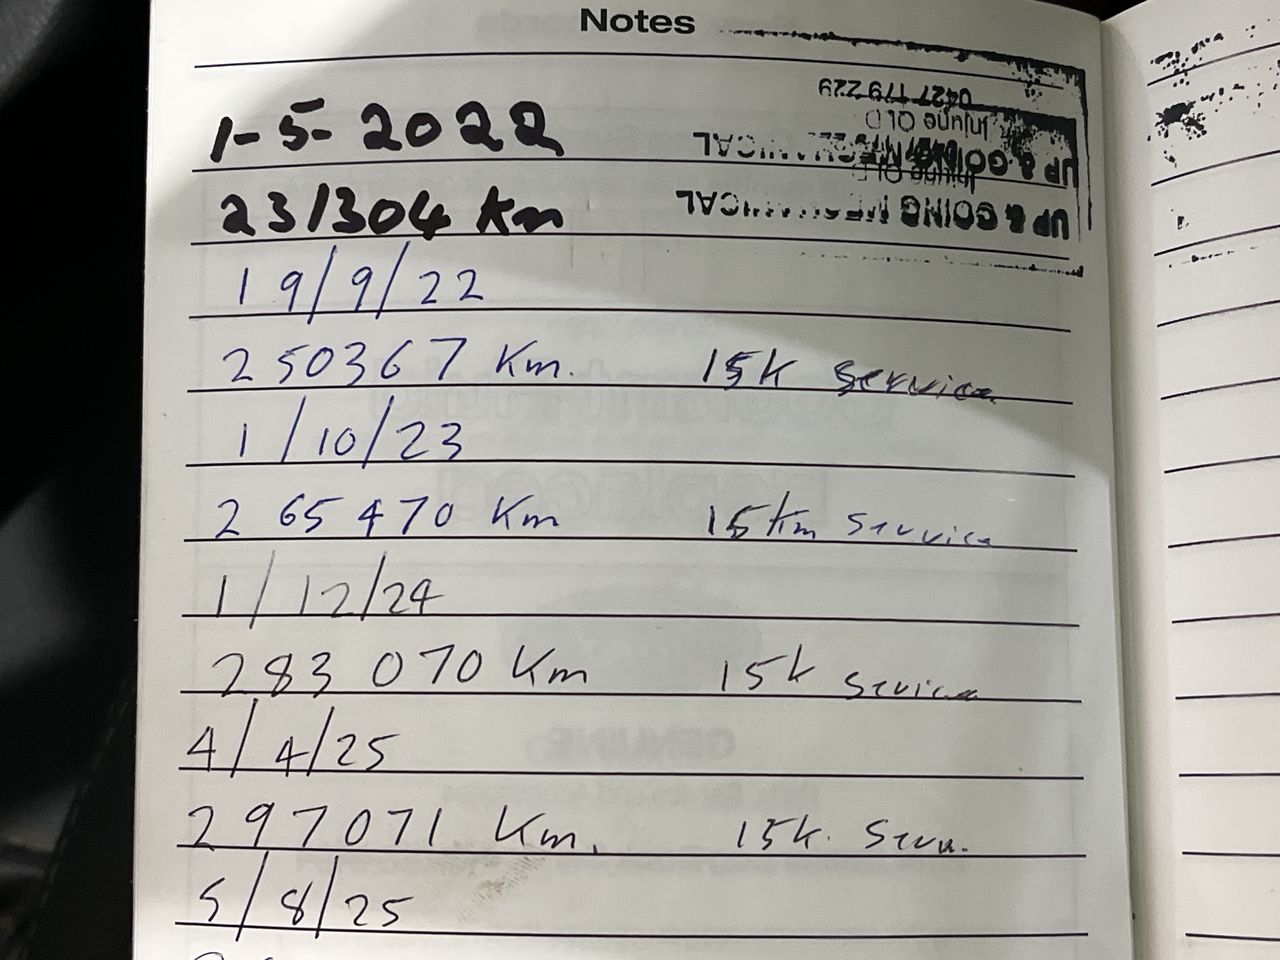 Notes
1-5-2022
231304 Km
UP & GOING MECHANICAL
Injune QLD
0427 179 229
UP & GOING MECHANICAL
Injune QLD
19/9/22
250367 Km. 15K Service
1/10/23
265470 Km 15km Service
1/12/24
283 070 Km 15k Service
4/4/25
297071 Km. 15k. Serv.
5/8/25